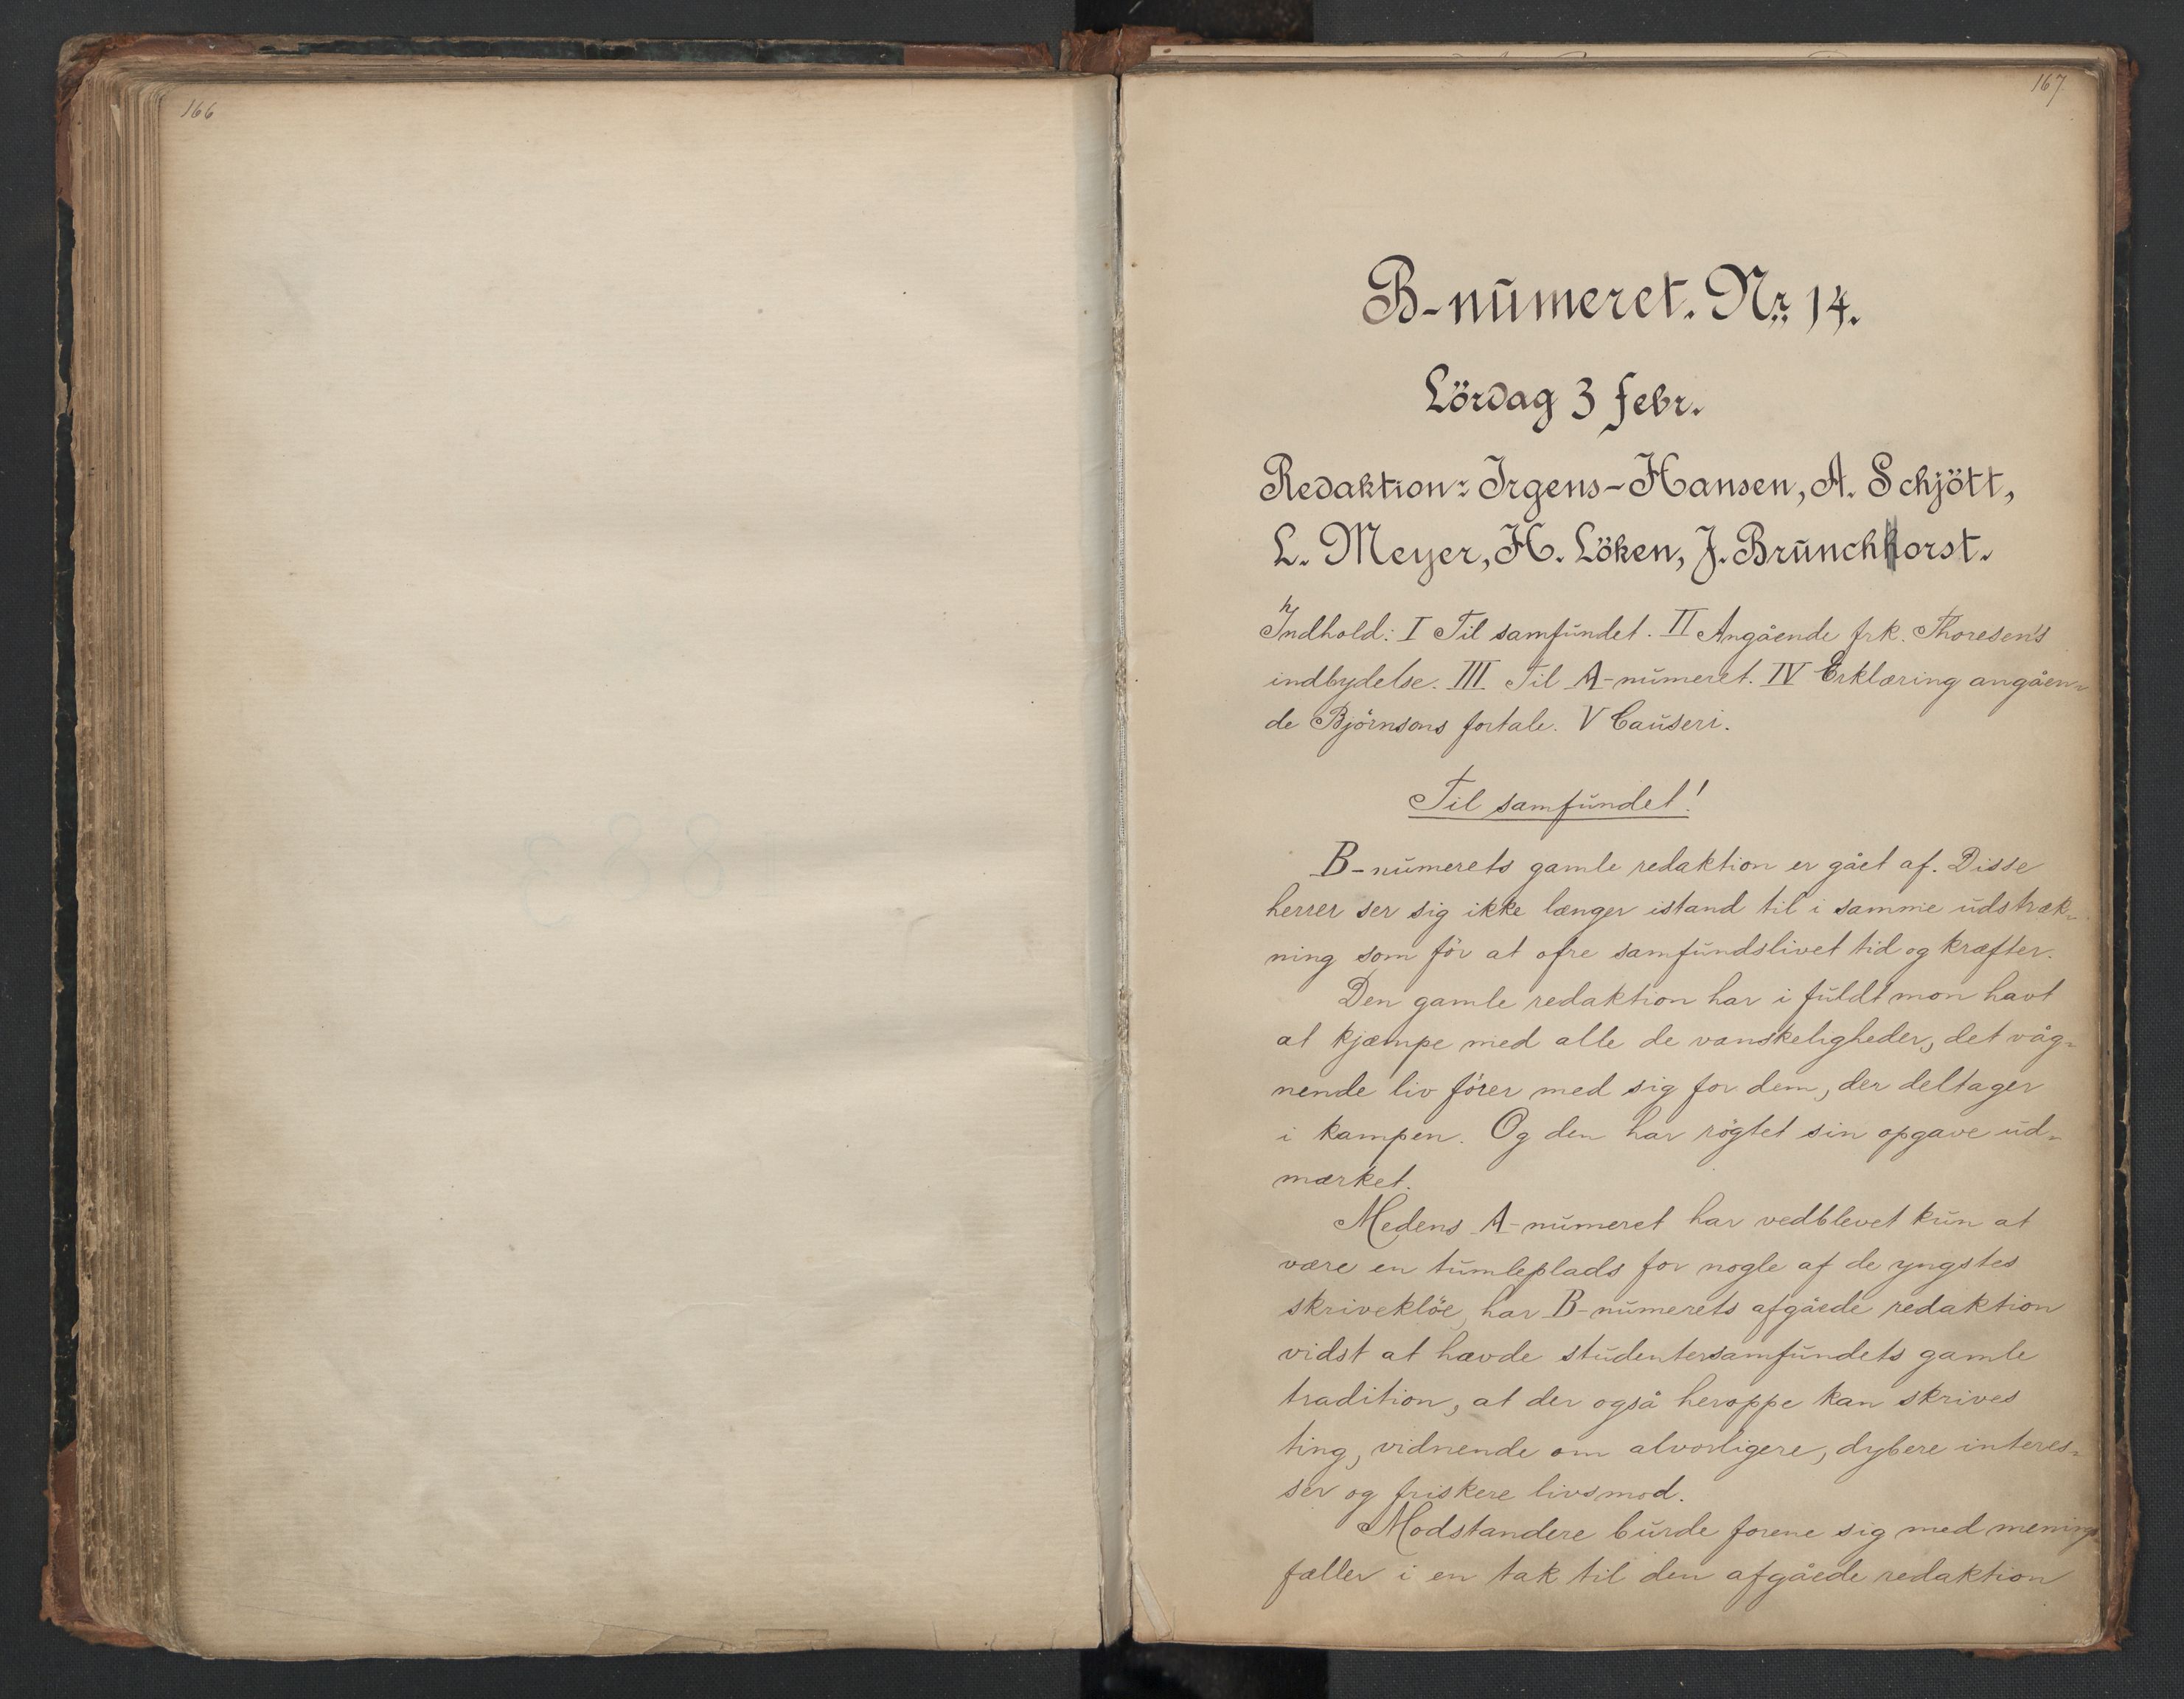 166
167
B-numeret. Nr. 14.
Lördag 3 febr.
Redaktion: Irgens-Hansen, A. Schjött,
L. Meyer, H. Löken, J. Brunchhorst.
Indhold: I Til samfundet. II Angående frk. Thoresen's
indbydelse. III Til A-numeret. IV Erklæring angåen-
de Björnsons fortale. V Causeri.
Til samfundet!
B-numerets gamle redaktion er gået af. Disse
herrer ser sig ikke længer istand til i samme udstræk-
ning som för at ofre samfundslivet tid og kræfter.
Den gamle redaktion har i fuldt mon havt
at kjæmpe med alle de vanskeligheder, det våg-
nende liv förer med sig for dem, der deltager
i kampen. Og den har rögtet sin opgave ud-
mærket.
Medens A-numeret har vedblevet kun at
være en tumleplads for nogle af de yngstes
skriveklöe, har B-numerets afgåede redaktion
vidst at hævde studentersamfundets gamle
tradition, at der også heroppe kan skrives
ting, vidnende om alvorligere, dybere interes-
ser og friskere livsmod.
Modstandere burde forene sig med menings
fæller i en tak til den afgåede redaktion